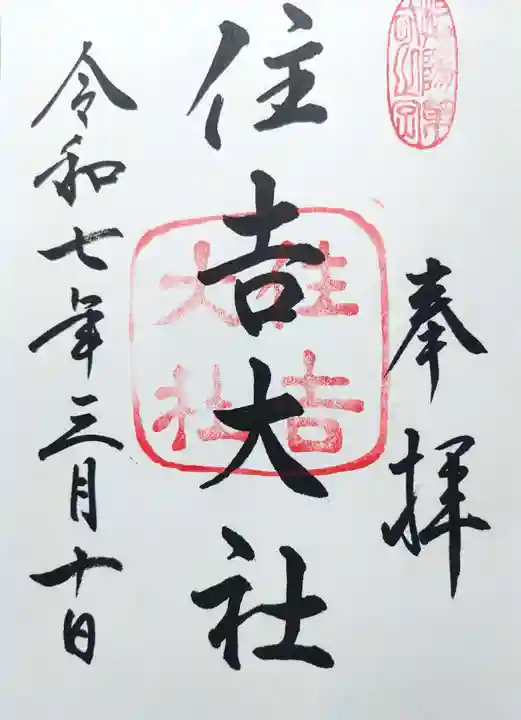 奉拝
住吉大社
住吉
大社
令和七年三月十日